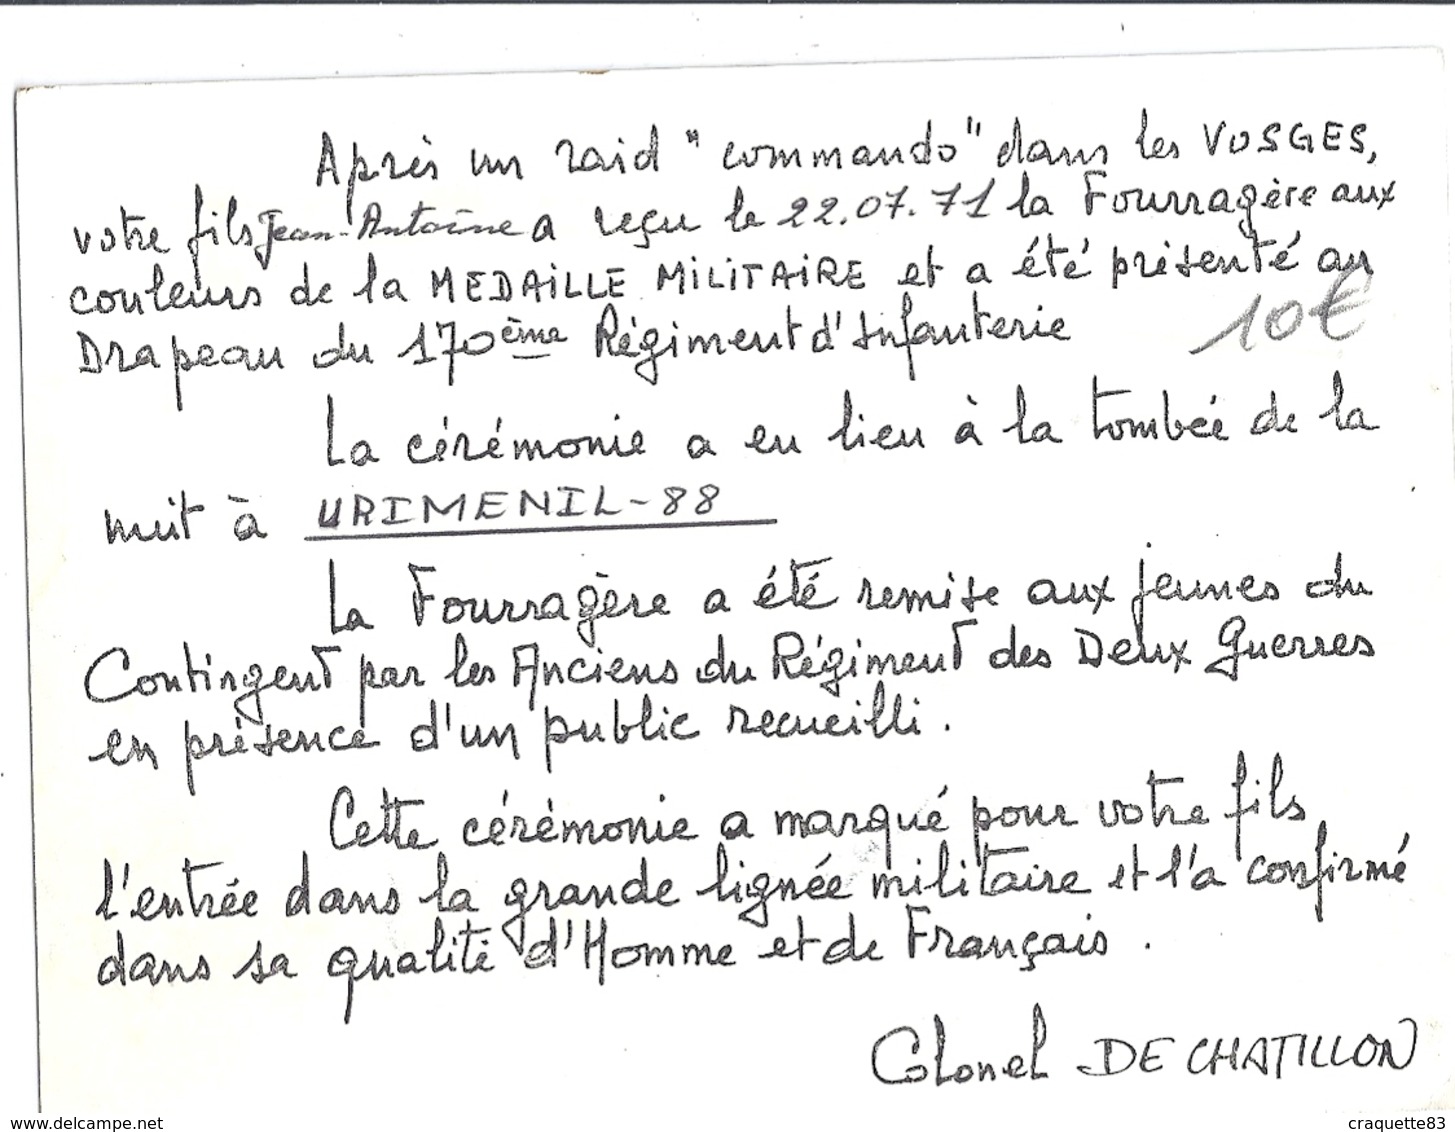 Après un raid "commando" dans les VOSGES,
votre fils Jean-Antoine a reçu le 22.07.71 la Fourragère aux
couleurs de la MEDAILLE MILITAIRE et a été présenté au
Drapeau du 170ème Régiment d'Infanterie
10€
La cérémonie a eu lieu à la tombée de la
nuit à URIMENIL-88
La Fourragère a été remise aux jeunes du
Contingent par les Anciens du Régiment des Deux Guerres
en présence d'un public recueilli.
Cette cérémonie a marqué pour votre fils
l'entrée dans la grande lignée militaire et l'a confirmé
dans sa qualité d'Homme et de Français.
Colonel DE CHATILLON
www.delcampe.net
craquette83